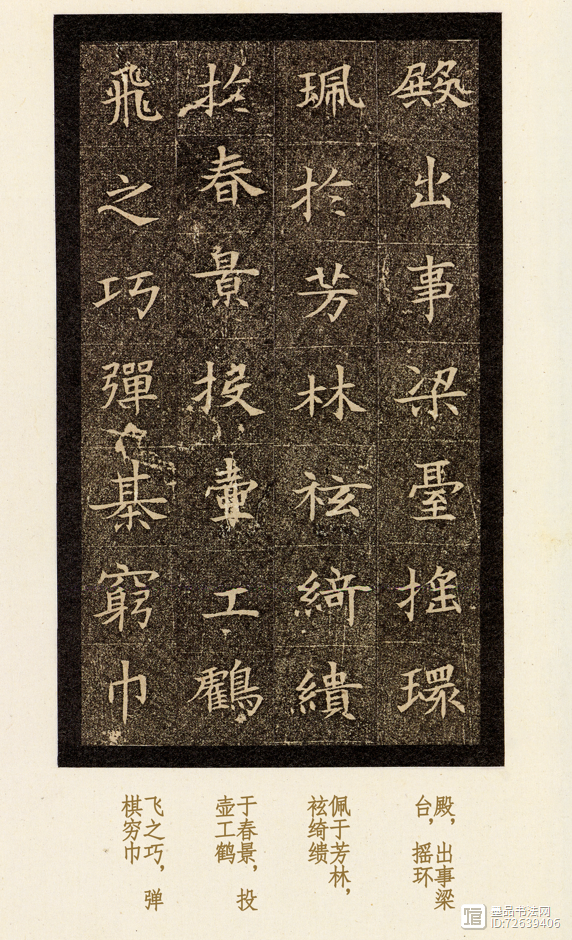 殿出事梁臺摇環
珮於芳林袨綺繢
於春景投壷工鶴
飛之巧彈棊窮巾
殿，出事梁
台，摇环
佩于芳林，
袨绮缋
于春景，投
壶工鹤
飞之巧，弹
棋穷巾
墨品书法网
ID:72639406